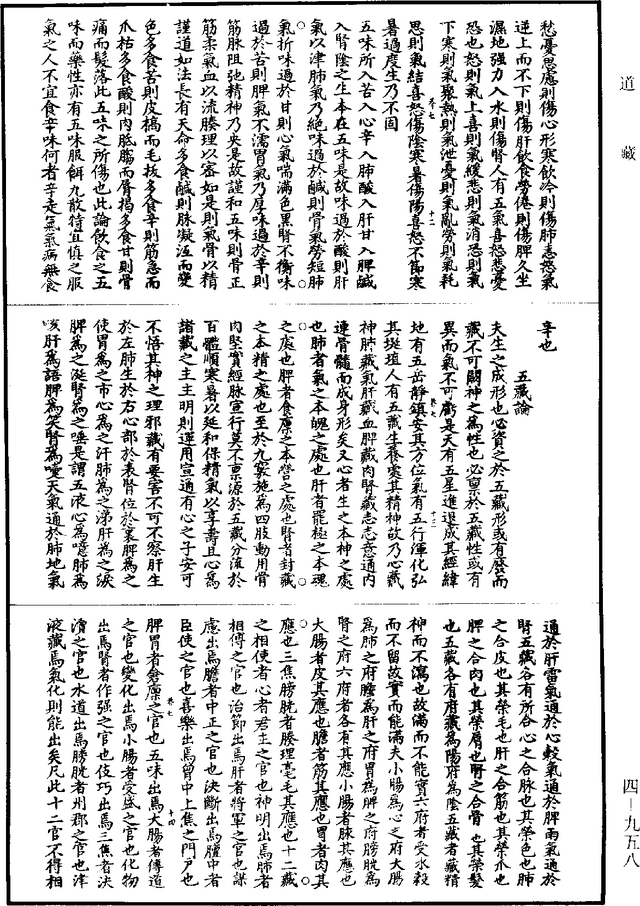 道藏
愁憂思慮則傷心形寒飲冷則傷肺恚怒氣
逆上而不下則傷肝飲食勞倦則傷脾久坐
濕地强力入水則傷腎人有五氣喜怒悲憂
恐也怒則氣上喜則氣緩悲則氣消恐則氣
下寒則氣聚熱則氣泄憂則氣亂勞則氣耗
思則氣結喜怒傷陰寒暑傷陽喜怒不節寒
暑過度生乃不固
五味所入苦入心辛入肺酸入肝甘入脾鹹
入腎陰之生本在五味是故味過於酸則肝
氣以津肺氣乃絶味過於鹹則骨氣勞短肺
氣折味過於甘則心氣喘滿色黑腎不衡味
過於苦則脾氣不濡胃氣乃厚味過於辛則
筋脉阻弛精神乃央是故謹和五味則骨正
筋柔氣血以流腠理以密如是則氣骨以精
謹道如法長有天命多食鹹則脉凝泣而變
色多食苦則皮槁而毛拔多食辛則筋急而
爪枯多食酸則肉胝䐢而脣揭多食甘則骨
痛而髮落此五味之所傷也此論飲食之五
味而藥性亦有五味服餌丸散特宜慎之服
氣之人不宜食辛味何者辛走氣氣病無食
辛也
五藏論
夫生之成形也必資之於五藏形或有廢而
藏不可闕神之爲性也必禀於五藏性或有
異而氣不可虧是天有五星進退成其經緯
地有五岳靜鎮安其方位氣有五行渾化弘
其埏埴人有五藏生養處其精神故乃心藏
神肺藏氣肝藏血脾藏肉腎藏志志意通内
連骨髓而成身形矣又心者生之本神之處
也肺者氣之本魄之處也肝者罷極之本魂
之處也脾者食廩之本營之處也腎者封藏
之本精之處也至於九竅施爲四肢動用骨
肉堅實經脉宣行莫不禀源於五藏分流於
百體順寒暑以延和保精氣以享壽且心爲
諸藏之主主明則運用宣通有心之子安可
不悟其神之理邪藏有要害不可不察肝生
於左肺生於右心部於表腎位於裏脾爲之
使胃爲之市心爲之汗肺爲之涕肝爲之淚
脾爲之涎腎爲之唾是謂五液心爲噫肺爲
咳肝爲語脾爲笑腎爲嚏天氣通於肺地氣
通於肝雷氣通於心穀氣通於脾雨氣通於
腎五藏各有所合心之合脉也其榮色也肺
之合皮也其榮毛也肝之合筋也其榮爪也
脾之合肉也其榮脣也腎之合骨也其榮髮
也五藏各有府藏爲陽府爲陰五藏者藏精
神而不瀉也故滿而不能實六府者受水穀
而不留故實而能滿夫小腸爲心之府大腸
爲肺之府膽爲肝之府胃爲脾之府膀胱爲
腎之府六府者各有其應小腸者脉其應也
大腸者皮其應也膽者筋其應也胃者肉其
應也三焦膀胱者腠理毫毛其應也十二藏
之相使者心者君主之官也神明出焉肺者
相傅之官也治節出焉肝者將軍之官也謀
慮出焉膽者中正之官也決斷出焉膻中者
臣使之官也喜樂出焉膻中上焦之門户也
脾胃者倉廩之官也五味出焉大腸者傳道
之官也變化出焉小腸者受盛之官也化物
出焉腎者作强之官也伎巧出焉三焦者決
瀆之官也水道出焉膀胱者州郡之官也津
液藏焉氣化則能出矣凡此十二官不得相
四—九五八